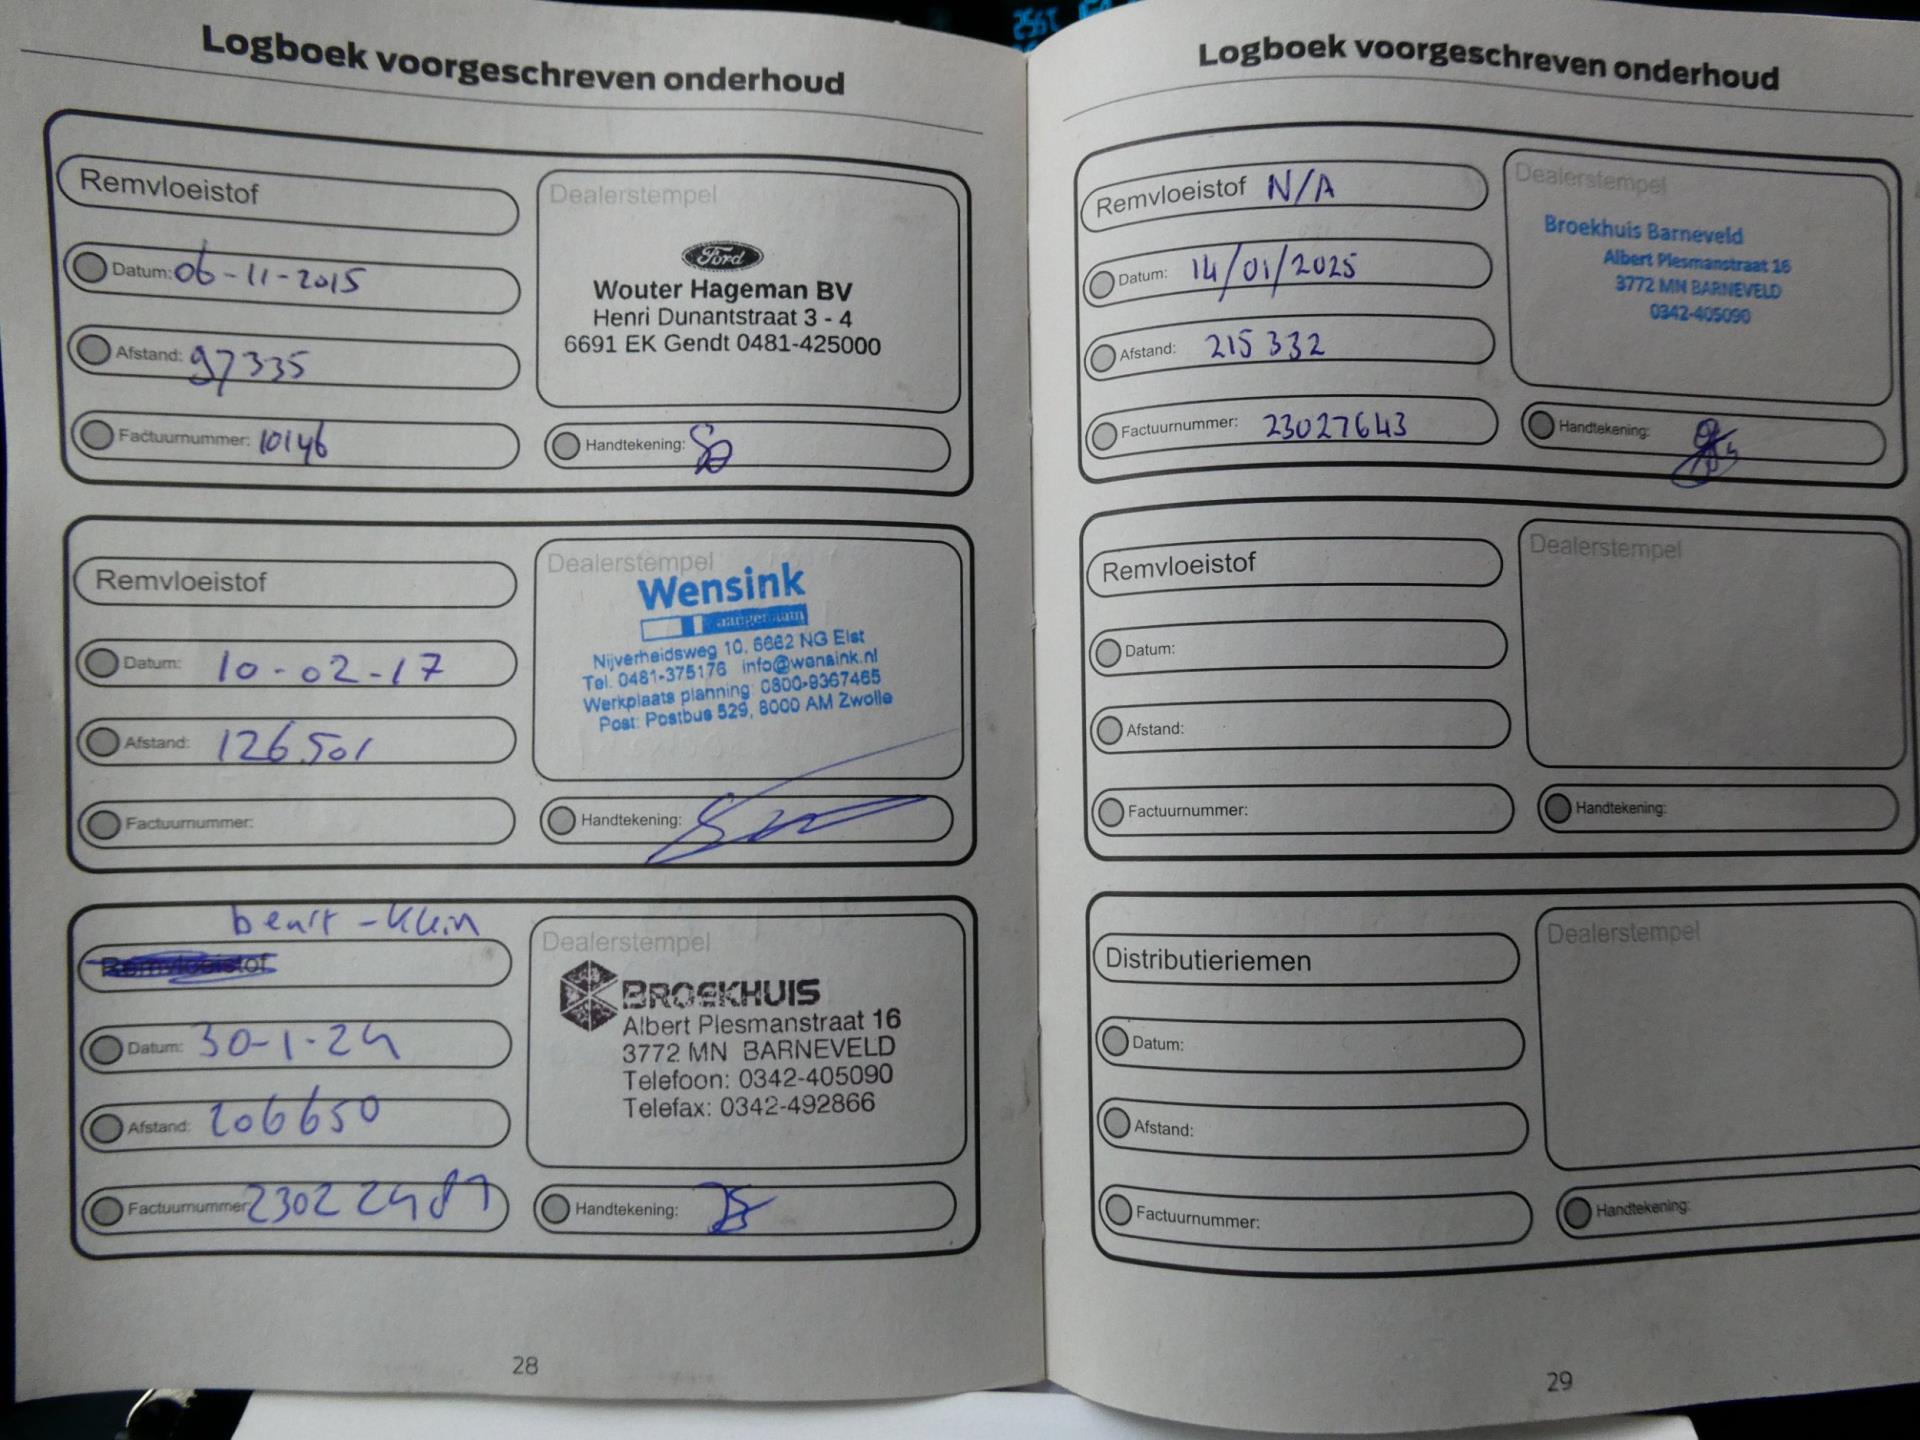 Logboek voorgeschreven onderhoud
Remvloeistof
Datum: 06-11-2015
Afstand: 97335
Factuurnummer: 10146
Dealerstempel
Ford
Wouter Hageman BV
Henri Dunantstraat 3 - 4
6691 EK Gendt 0481-425000
Handtekening:
Remvloeistof
Datum: 10-02-17
Afstand: 126.501
Factuurnummer:
Dealerstempel
Wensink
aangenaam
Nijverheidsweg 10, 6662 NG Elst
Tel. 0481-375176 info@wensink.nl
Werkplaats planning: 0800-9367465
Post: Postbus 529, 8000 AM Zwolle
Handtekening:
beurt - klein
Remvloeistof
Datum: 30-1-24
Afstand: 206650
Factuurnummer:
Dealerstempel
BROEKHUIS
Albert Plesmanstraat 16
3772 MN BARNEVELD
Telefoon: 0342-405090
Telefax: 0342-492866
Handtekening:
28
Logboek voorgeschreven onderhoud
Remvloeistof N/A
Datum: 14/01/2025
Afstand: 215 332
Factuurnummer: 23027643
Dealerstempel
Broekhuis Barneveld
Albert Plesmanstraat 16
3772 MN BARNEVELD
0342-405090
Handtekening:
Remvloeistof
Datum:
Afstand:
Factuurnummer:
Dealerstempel
Handtekening:
Distributieriemen
Datum:
Afstand:
Factuurnummer:
Dealerstempel
Handtekening:
29